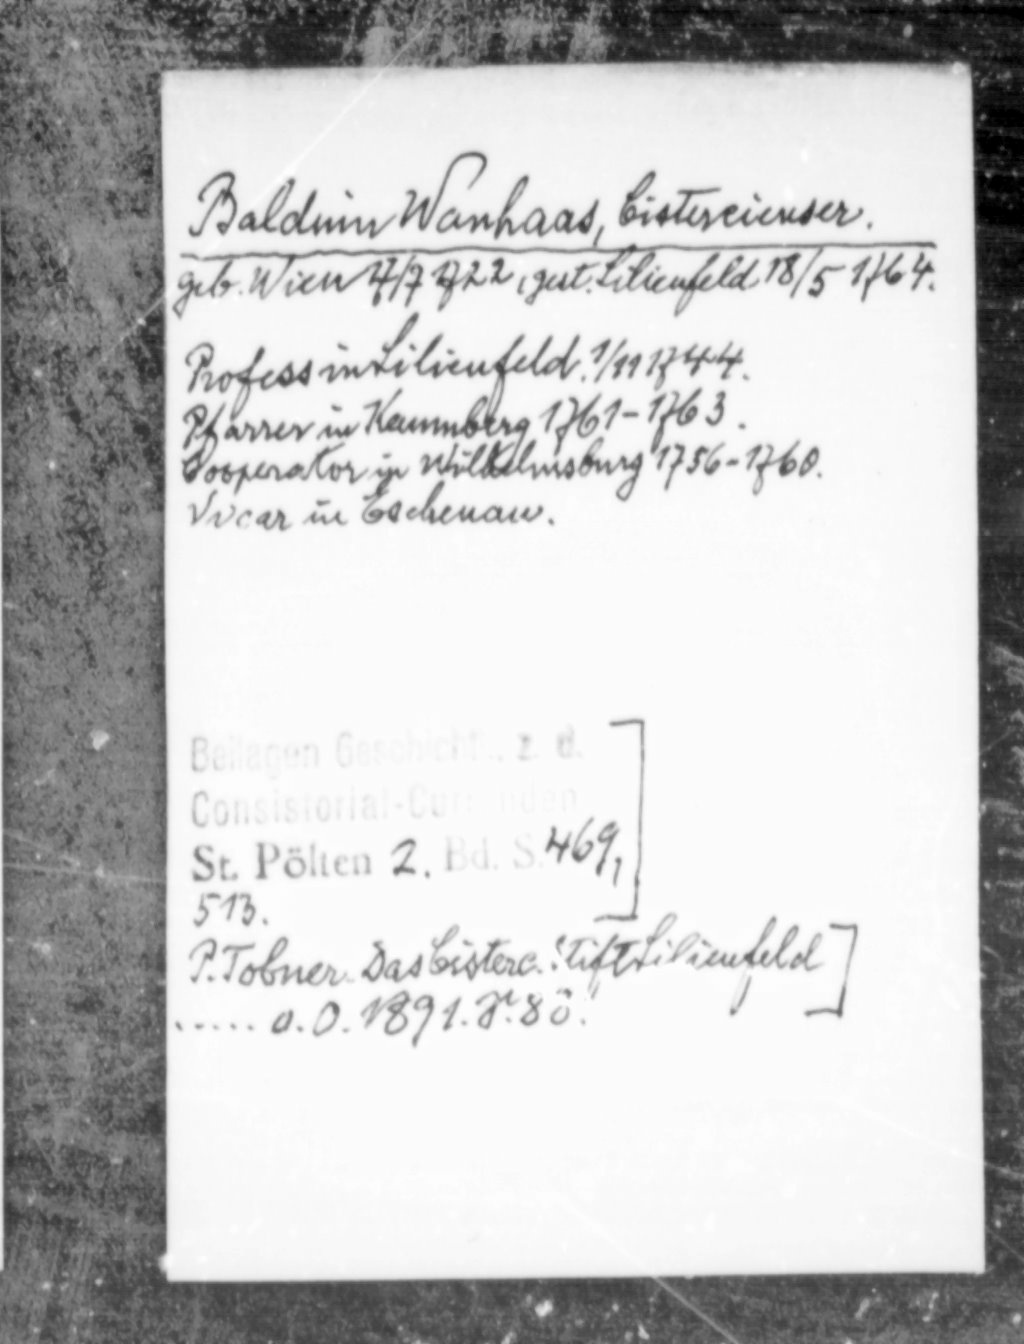 Balduin Wanhaas, Cistercienser.
geb. Wien 17/7 1722, gest. Lilienfeld 18/5 1764.
Profess in Lilienfeld. 1/11 1744.
Pfarrer in Kaumberg 1761-1763.
Cooperator in Wilhelmsburg 1756-1760.
Vicar in Eschenau.
Beilagen Geschichtl. z. d.
Consistorial-Currenden
St. Pölten 2. Bd. S. 469,
513.
P. Tobner. Das Cisterc. Stift Lilienfeld
..... a. O. 1891.